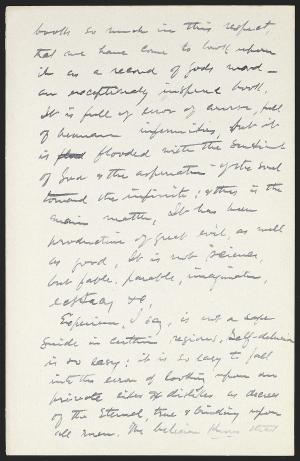 book so much in this respect,
that we have come to look upon
it as a record of gods word —
an exceptionally inspired book.
It is full of error of course, full
of human infirmities, but it
is flooded with the sunlight
of God & the aspiration of the soul
toward the infinite; & this is the
main matter. It has been
productive of great evil, as well
as good. It is not science,
but fable, parable, imagination,
ecstacy &c,
Experience, I say, is not a safe
guide in certain regions, Self-delusion
is so easy; it is so easy to fall
into the error of looking upon our
private likes & dislikes as decrees
of the Eternal, true & binding upon
all men. The believer